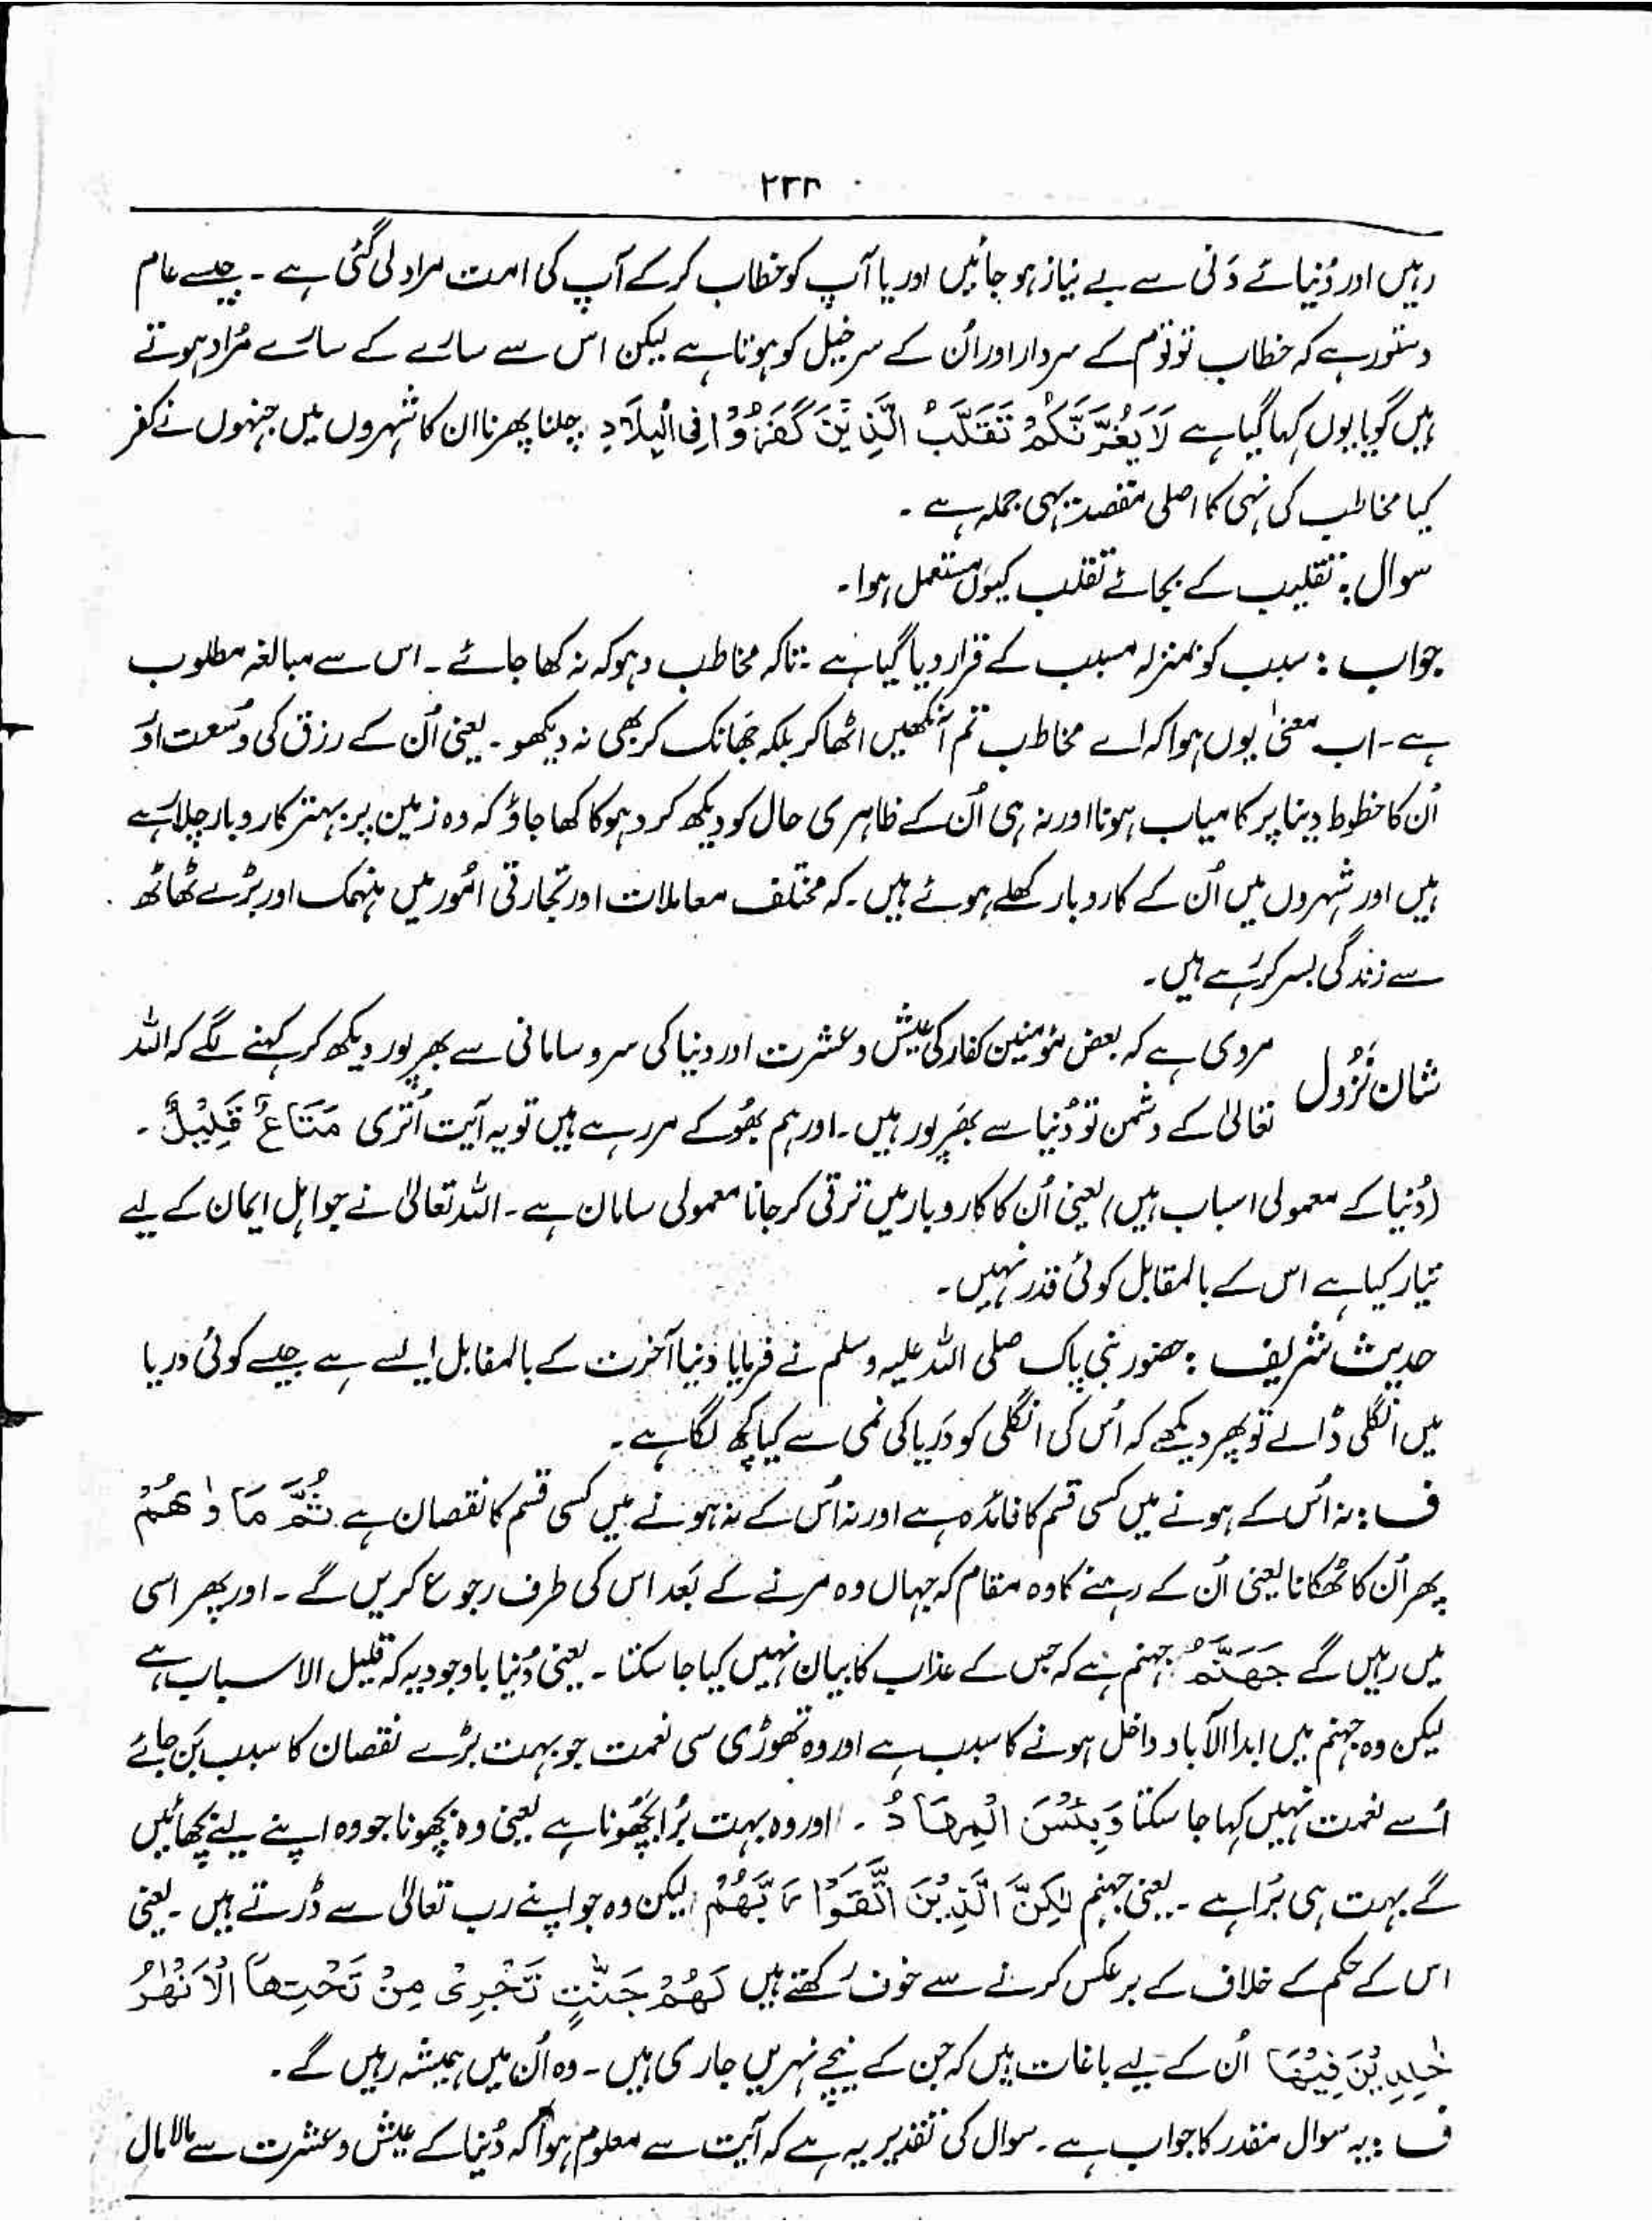 ۲۳۳
رہیں اور دُنیائے دَنی سے بے نیاز ہو جائیں اور یا آپ کو خطاب کر کے آپ کی امت مراد لی گئی ہے ۔ جیسے عام
دستور ہے کہ خطاب تو قوم کے سردار اور اُن کے سر خیل کو ہوتا ہے لیکن اس سے سارے کے سارے مُراد ہوتے
ہیں گویا یوں کہا گیا ہے لَا يَغُرَّنَّكُمْ تَقَلُّبُ الَّذِيْنَ كَفَرُوْا فِي الْبِلَادِ چلنا پھرنا ان کا شہروں میں جنہوں نے کفر
کیا مخاطب کی نہی کا اصلی مقصد یہی جملہ ہے ۔
سوال : تقلیب کے بجائے تقلب کیوں مستعمل ہوا ۔
جواب : سبب کو بمنزلہ مسبب کے قرار دیا گیا ہے : تاکہ مخاطب دہوکہ نہ کھا جائے ۔ اس سے مبالغہ مطلوب
ہے ۔ اب معنیٰ یوں ہوا کہ اے مخاطب تم آنکھیں اٹھا کر بلکہ جھانک کر بھی نہ دیکھو ۔ یعنی اُن کے رزق کی وُسعت اوُ
اُن کا حظوط دینا پر کامیاب ہونا اور نہ ہی اُن کے ظاہری حال کو دیکھ کر دہوکا کھا جاؤ کہ وہ زمین پر بہتر کاروبار چلا رہے
ہیں اور شہروں میں اُن کے کاروبار کھلے ہوئے ہیں ۔ کہ مختلف معاملات اور تجارتی امُور میں منہمک اور بڑے ٹھاٹھ
سے زندگی بسر کر رہے ہیں ۔
شان نُزُول مروی ہے کہ بعض مؤمنین کفار کی عیش و عشرت اور دنیا کی سروسامانی سے بھرپور دیکھ کر کہنے لگے کہ اللہ
تعالیٰ کے دشمن تو دُنیا سے بھرَپور ہیں ۔ اور ہم بھُوکے مر رہے ہیں تو یہ آیت اُتری مَتَاعٌ قَلِيْلٌ ۔
(دُنیا کے معمولی اسباب ہیں) یعنی اُن کا کاروبار میں ترقی کر جانا معمولی سامان ہے ۔ اللہ تعالیٰ نے جو اہل ایمان کے لیے
تیار کیا ہے اس کے بالمقابل کوئی قدر نہیں ۔
حدیث شریف : حضور نبی پاک صلی اللہ علیہ وسلم نے فرمایا دنیا آخرت کے بالمقابل ایسے ہے جیسے کوئی دریا
میں انگلی ڈالے تو پھر دیکھے کہ اُس کی انگلی کو دَریا کی نمی سے کیا کچھ لگا ہے ۔
ف : نہ اُس کے ہونے میں کسی قسم کا فائدہ ہے اور نہ اُس کے نہ ہونے میں کسی قسم کا نقصان ہے ثُمَّ مَاْوٰىهُمْ
پھر اُن کا ٹھکانا یعنی اُن کے رہنے کا وہ مقام کہ جہاں وہ مرنے کے بَعد اس کی طرف رجوع کریں گے ۔ اور پھر اسی
میں رہیں گے جَهَنَّمُ جہنم ہے کہ جس کے عذاب کا بیان نہیں کیا جا سکتا ۔ یعنی دُنیا باوجودیہ کہ قلیل الاسباب ہے
لیکن وہ جہنم میں ابدا الآباد داخل ہونے کا سبب ہے اور وہ تھوڑی سی نعمت جو بہت بڑے نقصان کا سبب بَن جائے
اُسے نعمت نہیں کہا جا سکتا وَبِئْسَ الْمِهَادُ ۔ اور وہ بہت بُرا بچھُونا ہے یعنی وہ بچھونا جو وہ اپنے لیے بچھائیں
گے بہت ہی بُرا ہے ۔ یعنی جہنم لٰكِنَّ الَّذِيْنَ اتَّقَوْا رَبَّهُمْ لیکن وہ جو اپنے رب تعالیٰ سے ڈرتے ہیں ۔ یعنی
اس کے حکم کے خلاف کے برعکس کرنے سے خوف رکھتے ہیں لَهُمْ جَنّٰتٍ تَجْرِىْ مِنْ تَحْتِهَا الْاَنْهٰرُ
خٰلِدِيْنَ فِيْهَا اُن کے لیے باغات ہیں کہ جن کے نیچے نہریں جاری ہیں ۔ وہ اُن میں ہمیشہ رہیں گے ۔
ف : یہ سوال مقدر کا جواب ہے ۔ سوال کی تقدیر یہ ہے کہ آیت سے معلوم ہوا کہ دُنیا کے عیش و عشرت سے مالا مال